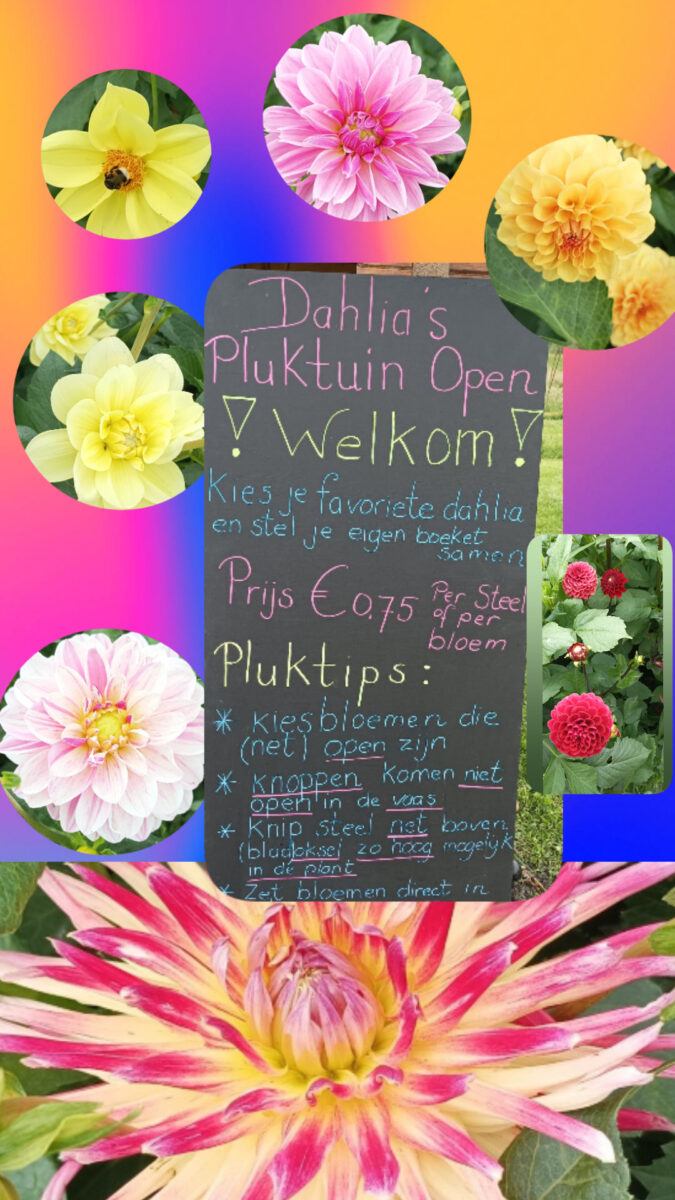 Dahlia's
Pluktuin Open
! Welkom !
Kies je favoriete dahlia
en stel je eigen boeket
samen
Prijs €0.75 Per Steel
of per
bloem
Pluktips:
* Kies bloemen die
(net) open zijn
* Knoppen komen niet
open in de vaas
* Knip steel net boven
(blad)oksel zo hoog mogelijk
in de plant
* Zet bloemen direct in